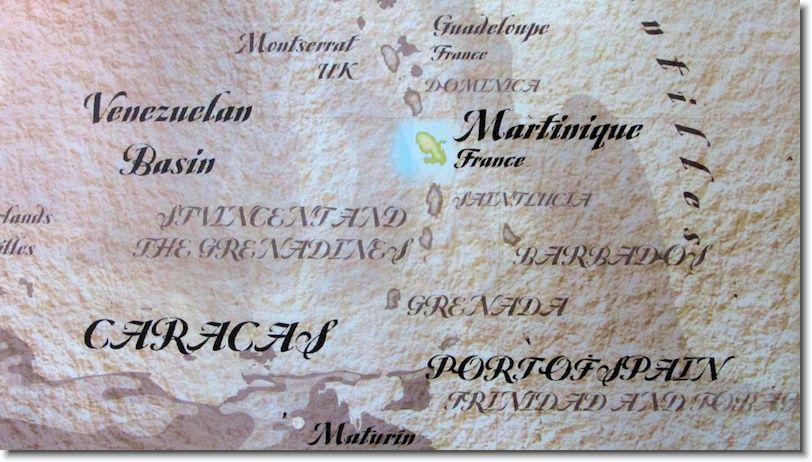 Guadeloupe
France
Montserrat
UK
DOMINICA
Venezuelan
Basin
Martinique
France
ntilles
SAINT LUCIA
ST VINCENT AND
THE GRENADINES
BARBADOS
GRENADA
CARACAS
PORT OF SPAIN
TRINIDAD AND TOBAG
Maturin